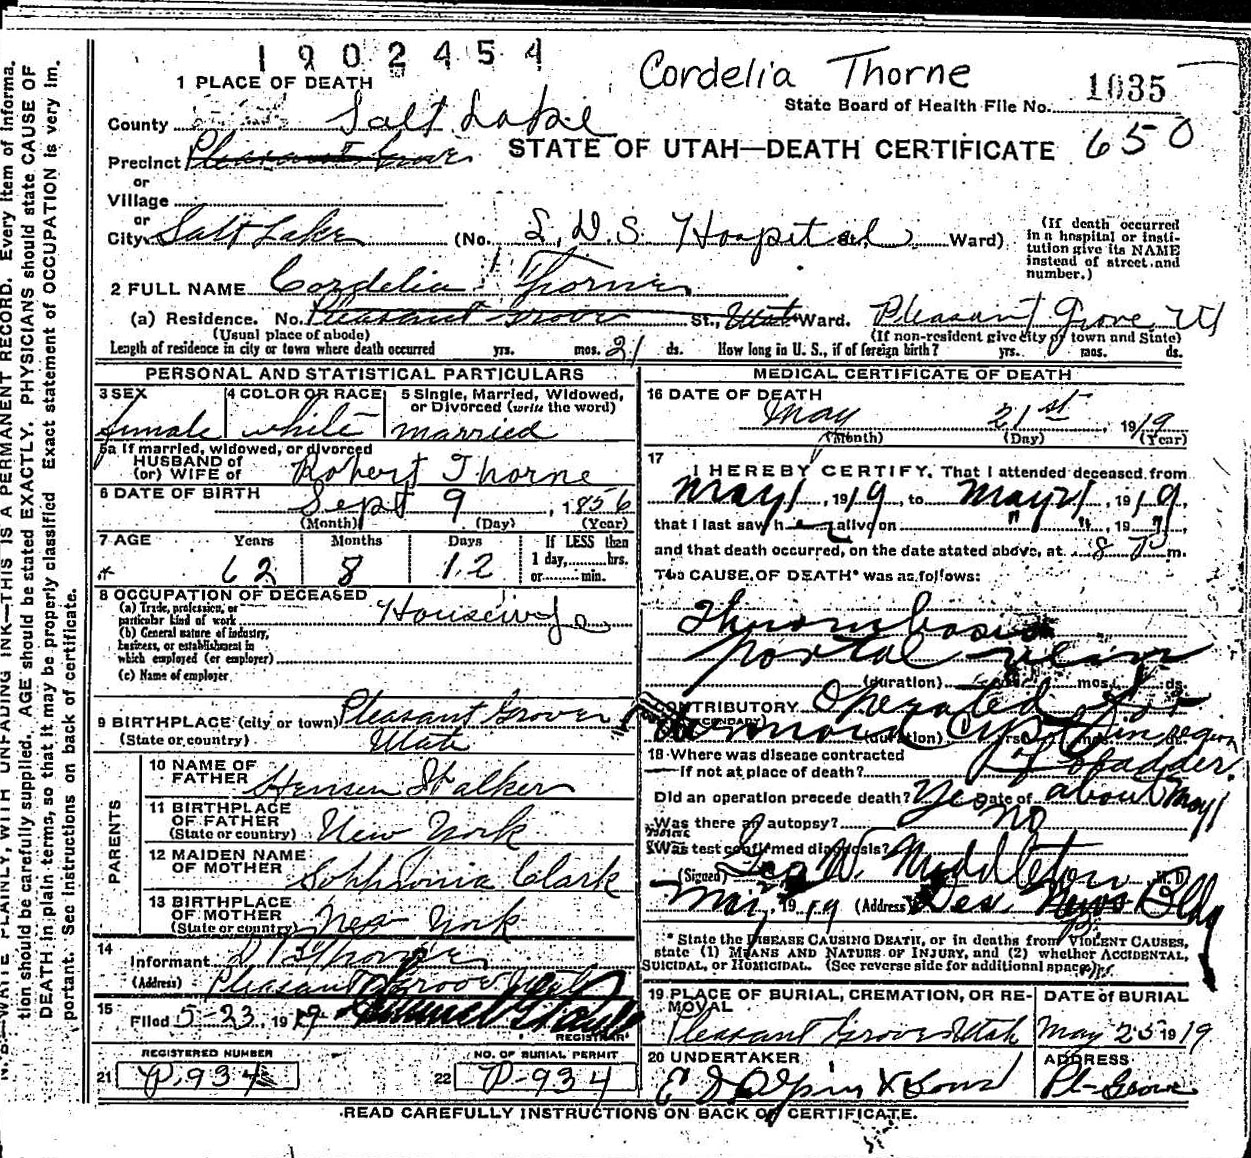 1902454
Cordelia Thorne
1035
1 PLACE OF DEATH
State Board of Health File No.
County Salt Lake
650
STATE OF UTAH—DEATH CERTIFICATE
Precinct Pleasant Grove
or
Village
or
City Salt Lake (No. L.D.S. Hospital St. Ward)
(If death occurred in a hospital or insti-
tution give its NAME
instead of street and
number.)
2 FULL NAME Cordelia Thorne
(a) Residence. No. Pleasant Grove St., Utah Ward. Pleasant Grove, Ut
(Usual place of abode) (If non-resident give city or town and State)
Length of residence in city or town where death occurred yrs. mos. 21 ds. How long in U. S., if of foreign birth? yrs. mos. ds.
PERSONAL AND STATISTICAL PARTICULARS
3 SEX 4 COLOR OR RACE 5 Single, Married, Widowed,
or Divorced (write the word)
female white married
5a If married, widowed, or divorced
HUSBAND of
(or) WIFE of Robert Thorne
6 DATE OF BIRTH Sept 9, 1856
(Month) (Day) (Year)
7 AGE Years Months Days If LESS than
1 day, hrs.
or min.
62 8 12
8 OCCUPATION OF DECEASED
(a) Trade, profession, or
particular kind of work Housewife
(b) General nature of industry,
business, or establishment in
which employed (or employer)
(c) Name of employer
9 BIRTHPLACE (city or town) Pleasant Grove
(State or country) Utah
PARENTS
10 NAME OF
FATHER Henson Walker
11 BIRTHPLACE
OF FATHER
(State or country) New York
12 MAIDEN NAME
OF MOTHER Sophronia Clark
13 BIRTHPLACE
OF MOTHER
(State or country) New York
14 Informant D B Thorne
(Address) Pleasant Grove Utah
15 Filed 5-23, 1919
REGISTRAR
REGISTERED NUMBER NO. OF BURIAL PERMIT
21 P.934 22 P-934
MEDICAL CERTIFICATE OF DEATH
16 DATE OF DEATH
May 21st, 1919
(Month) (Day) (Year)
17 I HEREBY CERTIFY, That I attended deceased from
May 1, 1919, to May 21, 1919,
that I last saw her alive on " ", 19 ",
and that death occurred, on the date stated above, at 8 P m.
The CAUSE OF DEATH* was as follows:
Thrombosis
portal vein
(duration) yrs. mos. ds.
CONTRIBUTORY Operated for
(SECONDARY)
removal Cyst in region
(duration) yrs. mos. ds.
of bladder.
18 Where was disease contracted
if not at place of death?
Did an operation precede death? Yes Date of about May 1
Was there an autopsy? no
What test confirmed diagnosis?
(Signed) Geo W. Middleton, M. D.
May, 1919 (Address) Des. News Bldg
* State the DISEASE CAUSING DEATH, or in deaths from VIOLENT CAUSES,
state (1) MEANS AND NATURE OF INJURY, and (2) whether ACCIDENTAL,
SUICIDAL, or HOMICIDAL. (See reverse side for additional space.)
19 PLACE OF BURIAL, CREMATION, OR RE-
MOVAL DATE of BURIAL
Pleasant Grove Utah May 25 1919
20 UNDERTAKER ADDRESS
& Sons Pl-Grove
READ CAREFULLY INSTRUCTIONS ON BACK OF CERTIFICATE.
N. B.—WRITE PLAINLY, WITH UNFADING INK—THIS IS A PERMANENT RECORD. Every item of informa-
tion should be carefully supplied. AGE should be stated EXACTLY. PHYSICIANS should state CAUSE OF
DEATH in plain terms, so that it may be properly classified. Exact statement of OCCUPATION is very im-
portant. See instructions on back of certificate.